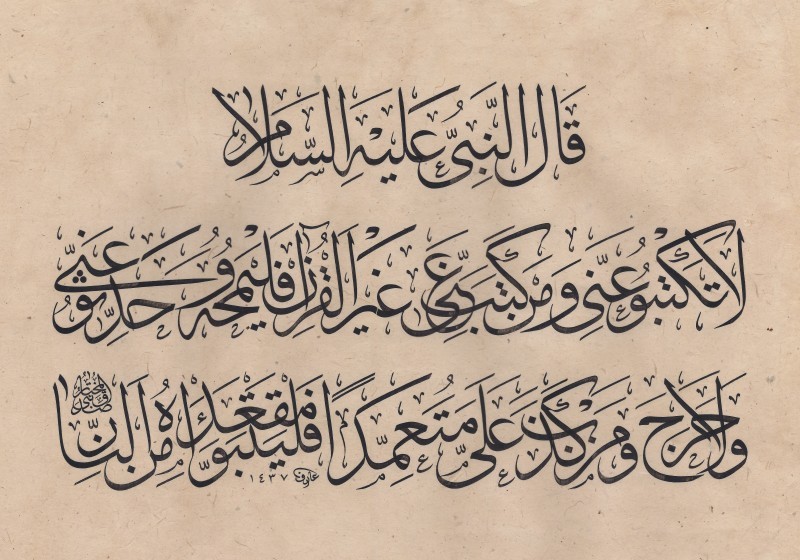 قَالَ النَّبِيُّ عَلَيْهِ السَّلَامُ
لَا تَكْتُبُوا عَنِّي وَمَنْ كَتَبَ عَنِّي غَيْرَ الْقُرْآنِ فَلْيَمْحُهُ وَحَدِّثُوا عَنِّي
وَلَا حَرَجَ وَمَنْ كَذَبَ عَلَيَّ مُتَعَمِّدًا فَلْيَتَبَوَّأْ مَقْعَدَهُ مِنَ النَّارِ
عارف ١٤٣٧